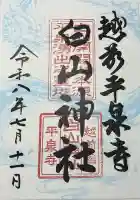 越前平泉寺
白山神社
令和八年七月十二日
平泉寺